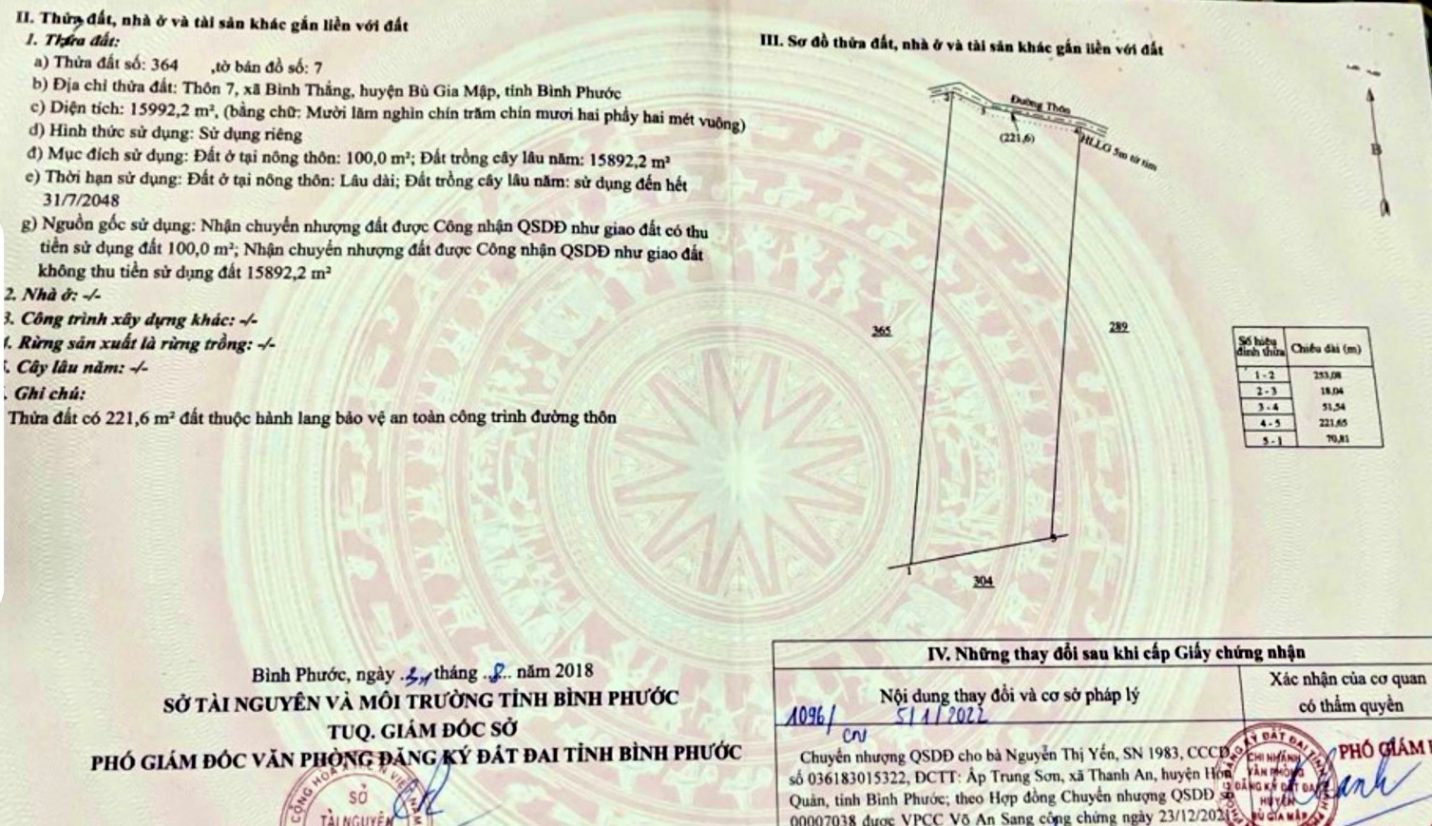 II. Thửa đất, nhà ở và tài sản khác gắn liền với đất
1. Thửa đất:
a) Thửa đất số: 364 ,tờ bản đồ số: 7
b) Địa chỉ thửa đất: Thôn 7, xã Bình Thắng, huyện Bù Gia Mập, tỉnh Bình Phước
c) Diện tích: 15992,2 m², (bằng chữ: Mười lăm nghìn chín trăm chín mươi hai phẩy hai mét vuông)
d) Hình thức sử dụng: Sử dụng riêng
đ) Mục đích sử dụng: Đất ở tại nông thôn: 100,0 m²; Đất trồng cây lâu năm: 15892,2 m²
e) Thời hạn sử dụng: Đất ở tại nông thôn: Lâu dài; Đất trồng cây lâu năm: sử dụng đến hết
31/7/2048
g) Nguồn gốc sử dụng: Nhận chuyển nhượng đất được Công nhận QSDĐ như giao đất có thu
tiền sử dụng đất 100,0 m²; Nhận chuyển nhượng đất được Công nhận QSDĐ như giao đất
không thu tiền sử dụng đất 15892,2 m²
2. Nhà ở: -/-
3. Công trình xây dựng khác: -/-
. Rừng sản xuất là rừng trồng: -/-
. Cây lâu năm: -/-
. Ghi chú:
Thửa đất có 221,6 m² đất thuộc hành lang bảo vệ an toàn công trình đường thôn
Bình Phước, ngày tháng 8 năm 2018
SỞ TÀI NGUYÊN VÀ MÔI TRƯỜNG TỈNH BÌNH PHƯỚC
TUQ. GIÁM ĐỐC SỞ
PHÓ GIÁM ĐỐC VĂN PHÒNG ĐĂNG KÝ ĐẤT ĐAI TỈNH BÌNH PHƯỚC
SỞ
TÀI NGUYÊN
III. Sơ đồ thửa đất, nhà ở và tài sản khác gắn liền với đất
Đường Thôn
2
3
4
(221,6)
HLLG 5m từ tim
B
365
289
5
1
304
Số hiệu đỉnh thửa Chiều dài (m)
1 - 2 253,08
2 - 3 18,04
3 - 4 51,54
4 - 5 221,65
5 - 1 70,81
IV. Những thay đổi sau khi cấp Giấy chứng nhận
Nội dung thay đổi và cơ sở pháp lý
Xác nhận của cơ quan
có thẩm quyền
1096/ 5/1/2022
CN
Chuyển nhượng QSDĐ cho bà Nguyễn Thị Yến, SN 1983, CCCD
số 036183015322, ĐCTT: Ấp Trung Sơn, xã Thanh An, huyện Hớn
Quản, tỉnh Bình Phước; theo Hợp đồng Chuyển nhượng QSDĐ
00007038 được VPCC Võ An Sang công chứng ngày 23/12/2021
PHÓ GIÁM
CHI NHÁNH
VĂN PHÒNG
ĐĂNG KÝ ĐẤT ĐAI
HUYỆN
BÙ GIA MẬP